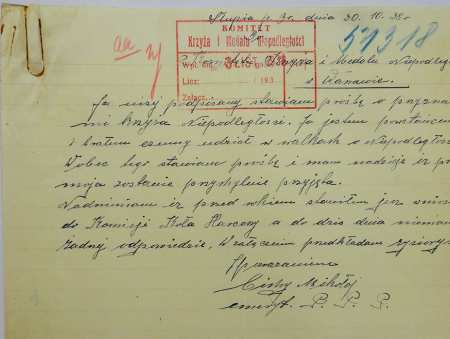 Słupia p. Śr. dnia 30.10.38r
57318
KOMITET
Krzyża i Medalu Niepodległości
Wpł. dnia
Licz. 193
Załącz.
Krzyża i Medalu Niepodległ
w Warszawie.
Ja niżej podpisany stawiam prośbę o przyzna
mi Krzyża Niepodległości. Ja jestem powstańcem
i brałem czynny udział w walkach o niepodległoś
Wobec tego stawiam prośbę i mam nadzieję iż pr
moja zostanie przychylnie przyjęta.
Nadmieniam iż przed rokiem stawiłem już wnios
do Komisji Koła a do dziś dnia niemam
żadnej odpowiedzie. W załączeniu przedkładam życiorys
Z poważaniem
Cichy Mikołaj
emeryt. P. P. P.